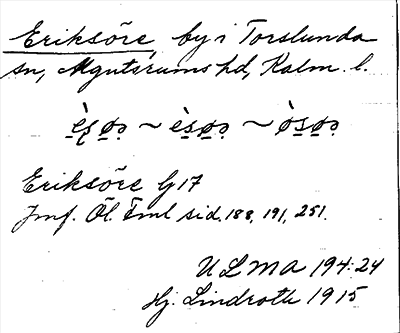 Eriksöre, by i Torslunda
sn, Algutsrums hd, Kalm. l.
Eriksöre G 17
Jmf. Öl. Fml sid. 188, 191, 251.
ULMA 194:24
Hj. Lindroth 1915